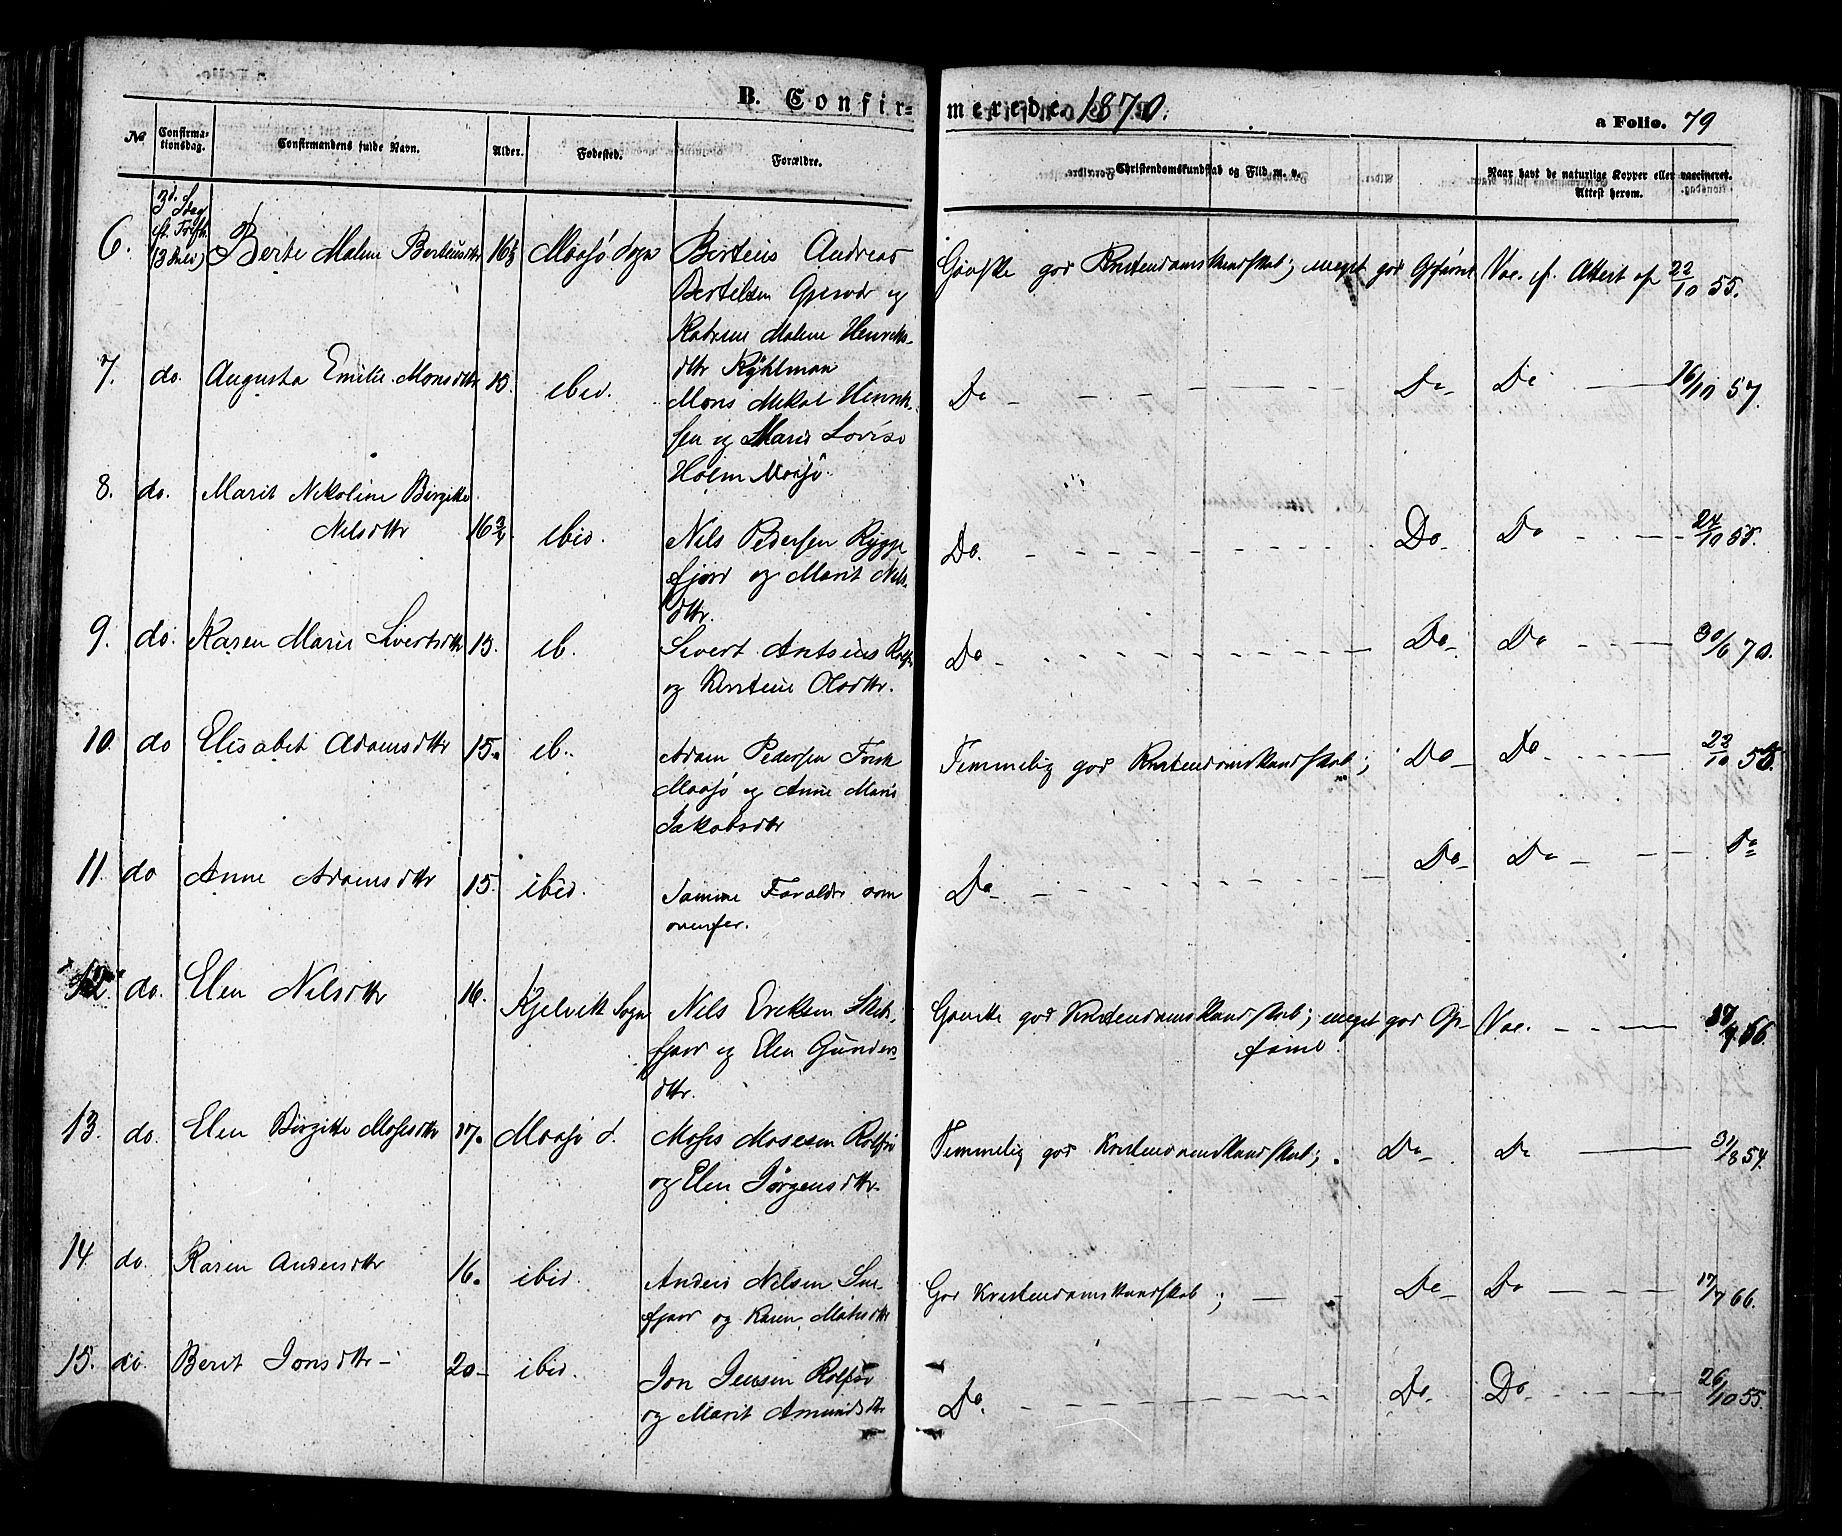 B. Confirmerede 1870.
a Folio. 79
No
Confirmationsdag.
Confirmandens fulde Navn.
Alder.
Fødested.
Forældre.
Christendomskundskab og Flid m. v.
Naar havt de naturlige Kopper eller vaccineret.
Attest herom.
6.
3d. Sdag
ef. Trefh.
(3 Juli)
Berte Malene Berteusdtr
16½
Maasø Sogn
Berteus Andreas
Bertelsen og
Katrine Malene Henriks-
dtr Kyhlman
Ganske god Kristendomskundskab; meget god Opførsel
Vac. ef. Attest af 22/10 55.
7.
do.
Augusta Emilie Monsdtr
15.
ibid.
Mons Mikal Henrik-
sen og Marie Lovise
Holm Maasø.
Do - - - -
Do
Do
16/10 57.
8.
do.
Marit Nikoline Birgitte
Nilsdttr
16 3/4
ibid.
Nils Pedersen Rygge
fjord og Marit Nils-
dttr.
Do. - - - -
Do-
Do
24/10 55.
9.
do.
Karen Marie Sivertsdttr
15.
ib.
Sivert Antsius Rolfs
og Kirstine Olsdttr.
Do - - - -
Do-
Do
30/6 70.
10.
do
Elisabet Adamsdttr
15.
ib.
Adam Pedersen
Maasø og Anne Marie
Jakobsdtr
Temmelig god Kristendomskundskab;
Do -
Do
22/10 56.
11.
do
Anne Adamsdttr
15.
ibid.
Samme Forældre som
ovenfor.
Do - - - -
Do-
Do -
Do
12.
do.
Elen Nilsdttr
16.
Kjelvik Sogn
Nils Eriksen
fjord og Elen Gunders-
dttr.
Ganske god Kristendomskundskab; meget god Op-
førsel
Vac. - - -
17/7 66.
13.
do.
Elen Birgitte Mosesdttr
17.
Maasø S.
Moses Mosesen Rolfsø
og Elen Jørgensdttr.
Temmelig god Kristendomskundskab;
Do-
Do
31/8 54.
14.
do.
Karen Andersdttr
16.
ibid.
Anders Nilsen Sne-
fjord og Karen Matisdttr
God Kristendomskundskab;
Do-
Do
17/7 66.
15.
do.
Berit Jonsdttr -
20-
ibid.
Jon Jensen Rolfsø
og Marit Amundsdtr
Do. - - - -
Do
Do.
26/10 55.